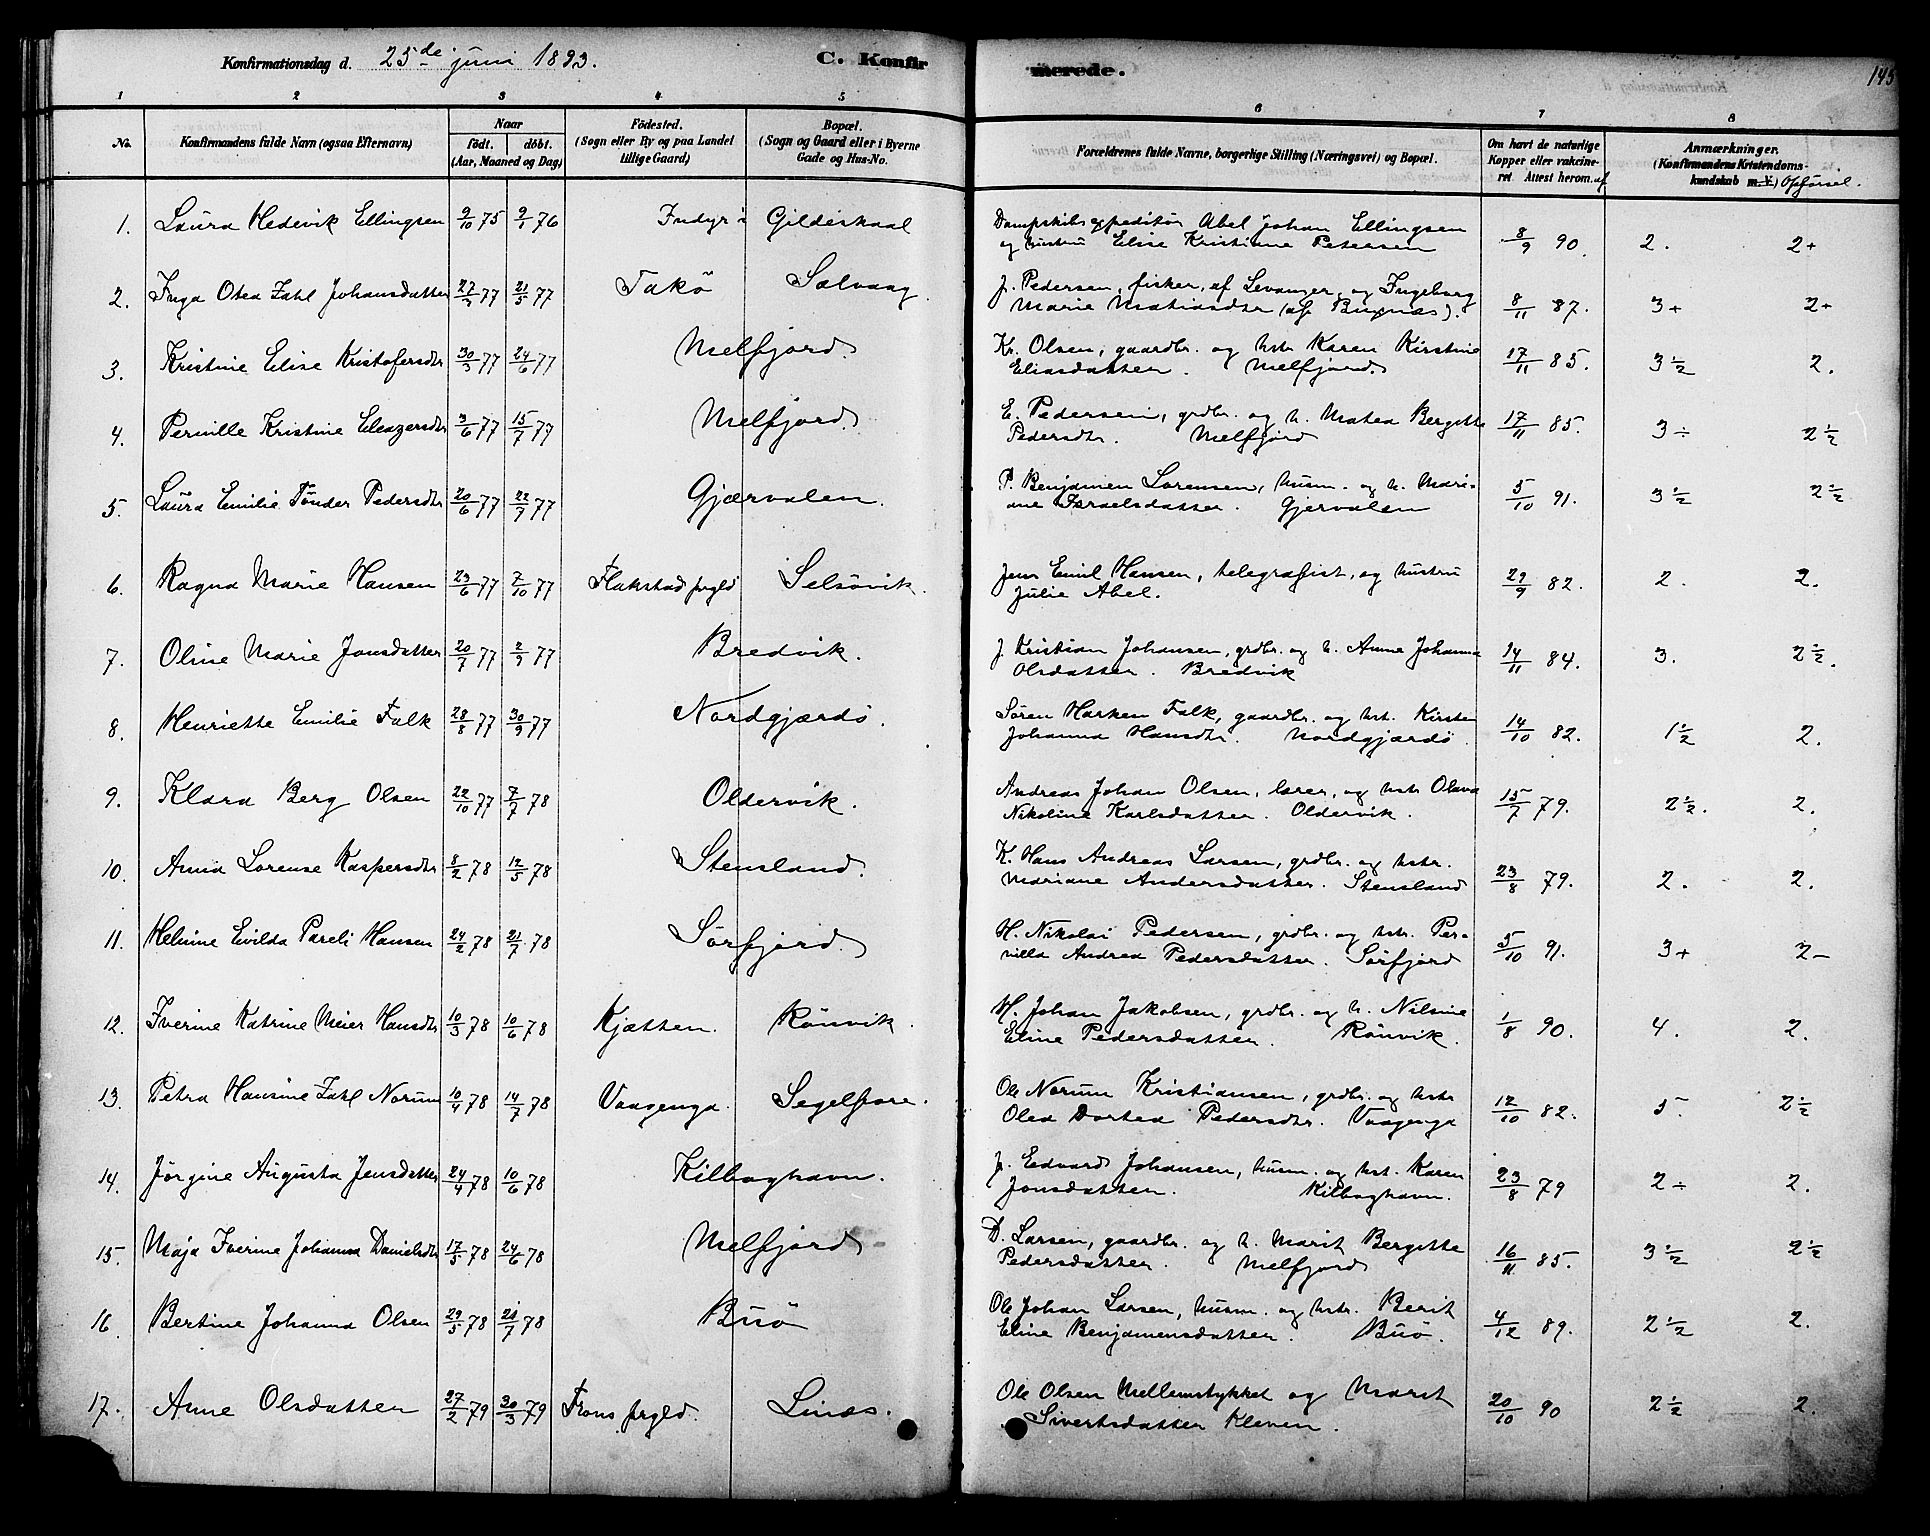 Konfirmationsdag d. 25de juni 1893. C. Konfirmerede. 145
1 2 3 4 5 6 7 8
No. Konfirmandens fulde Navn (ogsaa Efternavn) Naar født. døbt. (Aar, Maaned og Dag) Fødested. (Sogn eller By og paa Landet tillige Gaard) Bopæl. (Sogn og Gaard eller i Byerne Gade og Hus-No. Forældrenes fulde Navne, borgerlige Stilling (Næringsvei) og Bopæl. Om havt de naturlige Kopper eller vakcineret. Attest herom af Anmærkninger. (Konfirmandens Kristendomskundskab m. V.) Opførsel.
1. Laura Hedevik Ellingsen 9/10 75 9/1 76 Indyr i Gildeskaal Dampskibsexpeditør Abel Johan Ellingsen
og hustru Elise Kristiane Petersen 8/9 90. 2. 2+
2. Inga Otea Zahl Johansdatter 27/3 77 21/5 77 Selvaag J. Pedersen, fisker, af Levanger, og Ingeborg
Marie Matiasdtr (af Bugnæs). 8/11 87. 3+ 2+
3. Kristine Elise Kristofersdtr 30/3 77 24/6 77 Melfjord. Kr. Olsen, gaardbr. og hstr Karen Kirstine
Eliasdatter. Melfjord. 17/11 85. 3½ 2.
4. Pernille Kristine Eleazersdtr 3/6 77 15/7 77 Melfjord. E. Pedersen, grdbr. og h. Matea Bergitte
Pedersdtr. Melfjord 17/11 85. 3÷ 2½
5. Laura Emilie Tønder Pedersdtr 20/6 77 22/7 77 Gjærvalen. P. Benjamen Lorensen, husm. og h. Mari-
ane Israelsdatter. Gjervalen 5/10 91. 3½ 2½
6. Ragna Marie Hansen 23/6 77 7/10 77 Flakstad prgld Selsøvik. Jens Emil Hansen, telegrafist, og hustru
Julie Abel. 29/9 82. 2. 2.
7. Oline Marie Jonsdatter 20/7 77 2/9 77 Bredvik. J. Kristian Johansen, grdbr. og h. Anne Johanna
Olsdatter. Bredvik 14/11 84. 3. 2½.
8. Henriette Emilie Falk 28/8 77 30/9 77 Nordgjærdø. Søren Harken Falk, gaardbr. og hst. Kirsten
Johanna Hansdtr. Nordgjærdø. 14/10 82. 1½ 2.
9. Klara Berg Olsen 22/10 77 7/7 78 Oldervik. Andreas Johan Olsen, lærer, og hstr Olava
Nikoline Karlsdatter. Oldervik. 15/7 79. 2½. 2.
10. Anna Lorense Kaspersdtr 8/2 78 12/5 78 Stensland. K. Hans Andreas Larsen, grdbr. og hstr.
Mariane Andersdatter. Stensland 23/8 79. 2. 2.
11. Helmine Evilda Pareli Hansen 24/2 78 21/7 78 Sørfjord. H. Nikolai Pedersen, grdbr. og hstr. Per-
nilla Andrea Pedersdatter. Sørfjord 5/10 91. 3+ 2–
12. Iverine Katrine Meier Hansdtr 10/3 78 10/6 78 Kjætten. Rønvik. H. Johan Jakobsen, grdbr. og h. Nilsine
Eline Pedersdatter. Rønvik. 1/8 90. 4. 2.
13. Petra Hansine Zahl Norum 10/4 78 14/7 78 Vaagenga. Segelfore. Ole Norum Kristiansen, grdbr. og hstr
Olea Dortea Pedersdtr. Vaagenga 12/10 82. 5. 2½
14. Jørgine Augusta Jensdatter 24/4 78 10/6 78 Kilboghavn. J. Edvard Johansen, husm. og hst. Karen
Jonsdatter. Kilboghavn. 23/8 79 2÷ 2.
15. Maja Iverine Johanna Danielsdtr 17/5 78 24/6 78 Melfjord D. Larsen, gaardbr. og h. Marit Bergitte
Pedersdatter. Melfjord 16/11 85. 3½ 2½
16. Bertine Johanna Olsen 29/5 78 21/7 78 Buø Ole Johan Larsen, husm. og hstr. Berit
Eline Benjamensdatter. Buø. 4/12 89. 2½ 2.
17. Anne Olsdatter 27/2 79 30/3 79 prgld. Linæs. Ole Olsen Mellemstykket og Marit
Sivertsdatter Kleven. 20/10 90 2½ 2.